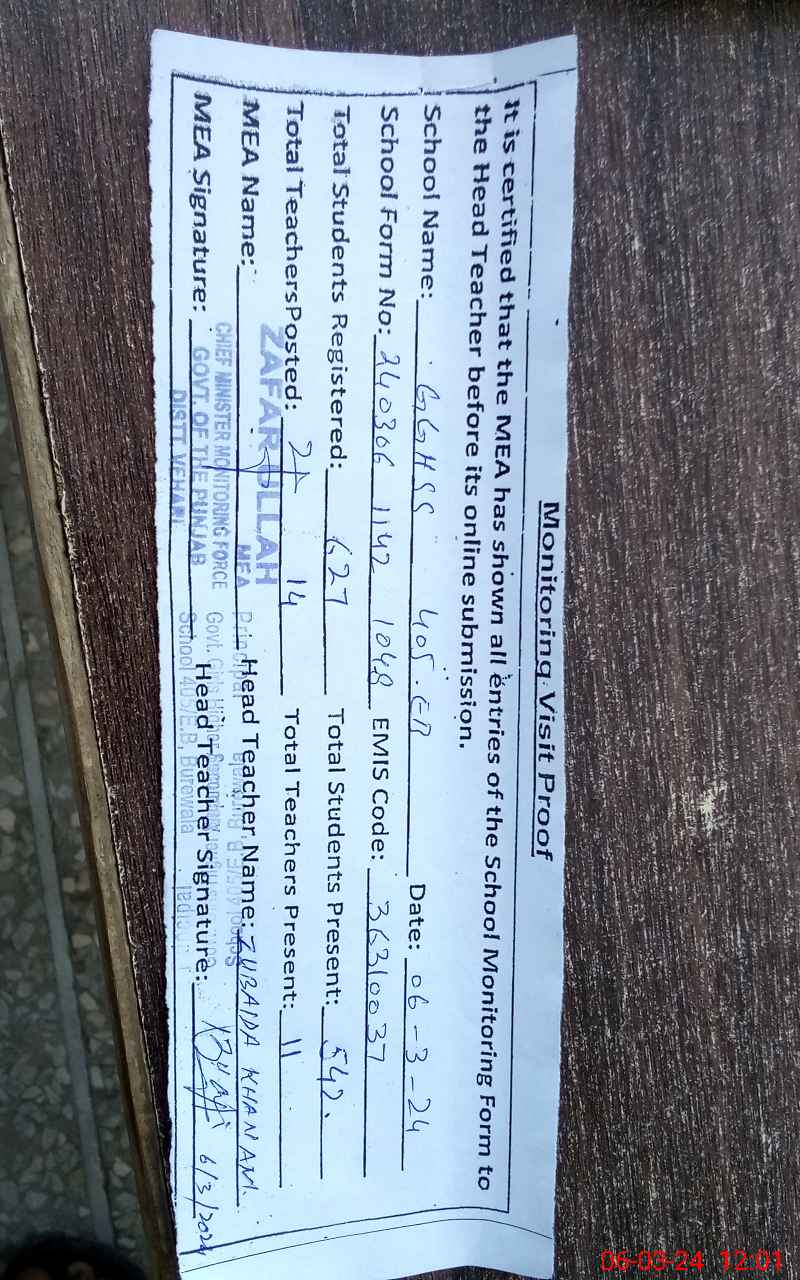 Monitoring Visit Proof
It is certified that the MEA has shown all entries of the School Monitoring Form to
the Head Teacher before its online submission.
School Name: GGHSS 405.EB Date: 06-3-24
School Form No: 240306 1142 1048 EMIS Code: 36310037
Total Students Registered: 627 Total Students Present: 542
Total TeachersPosted: 14 Total Teachers Present: 11
MEA Name: Head Teacher Name: ZUBAIDA KHANAM
MEA Signature: Head Teacher Signature: 6/3/2024
ZAFAR ULLAH
MEA
CHIEF MINISTER MONITORING FORCE
GOVT. OF THE PUNJAB
DISTT. VEHARI
Principal
Govt. Girls Higher Secondary
School 405/E.B, Burewala
06-03-24 12:01